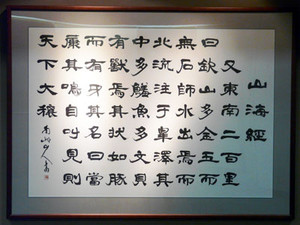 山海經
又東南二百里
曰欽山多金玉而
無石師水出焉而
北流注于皋澤其
中多鱃魚多文貝
有獸焉其狀如豚
而有牙其名曰當
康其鳴自叫見則
天下大穰